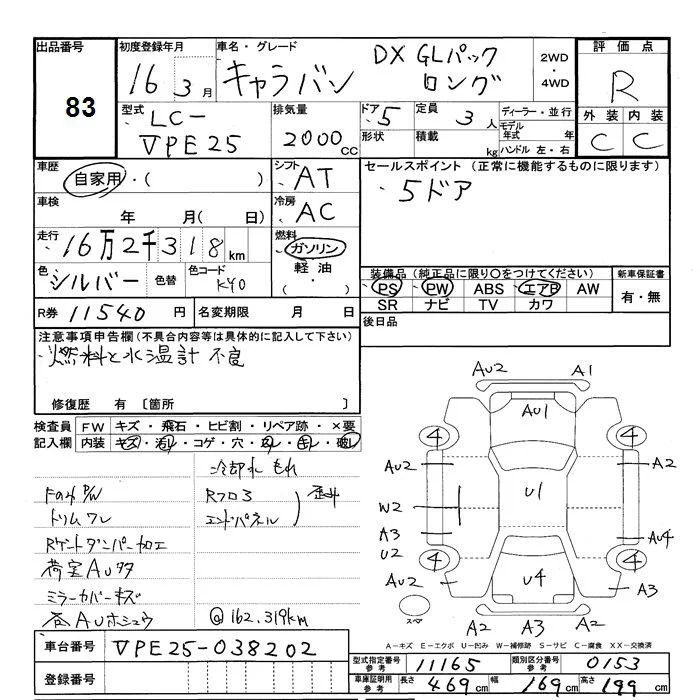 出品番号
83
初度登録年月
16 3月
車名・グレード
キャラバン
DX GLパック
ロング
2WD
・
4WD
評価点
R
外装 内装
C C
型式
LC-
VPE25
排気量
2000cc
ドア
5
形状
定員
3人
積載
kg
ディーラー・並行
モデル年式 年
ハンドル 左・右
車歴
自家用・( )
シフト
AT
セールスポイント(正常に機能するものに限ります)
5ドア
車検
年 月(日)
冷房
AC
走行
16万2千318km
燃料
ガソリン
軽油
・
( )
色
シルバー
色替
色コード
KY0
装備品(純正品に限り〇をつけてください)
PS PW ABS エアB AW
SR ナビ TV カワ
新車保証書
有・無
R券 11540円
名変期限 月 日
後日品
注意事項申告欄(不具合内容等は具体的に記入して下さい)
燃料と水温計 不良
修復歴 有〔箇所 〕
検査員
記入欄
FW キズ・飛石・ヒビ割・リペア跡・×要
内装 キズ・汚れ・コゲ・穴・切れ
冷却水 もれ
Rフロア
エンドパネル
トリムワレ
荷室AUタタ
ミラーカバーキズ
@162.319km
AU2 A1
AU1
4 4
AU2 A2
U1
W2
A3
U2
AU4
4 4
AU2 U4 A3
スペア
A2 A3 A2
A-キズ E-エクボ U-凹み W-補修跡 S-サビ C-腐食 XX-交換済
車台番号
VPE25-038202
登録番号
型式指定番号
参考
11165
類別区分番号
参考
0153
車庫証明用
参考
長さ 469cm 幅 169cm 高さ 199cm